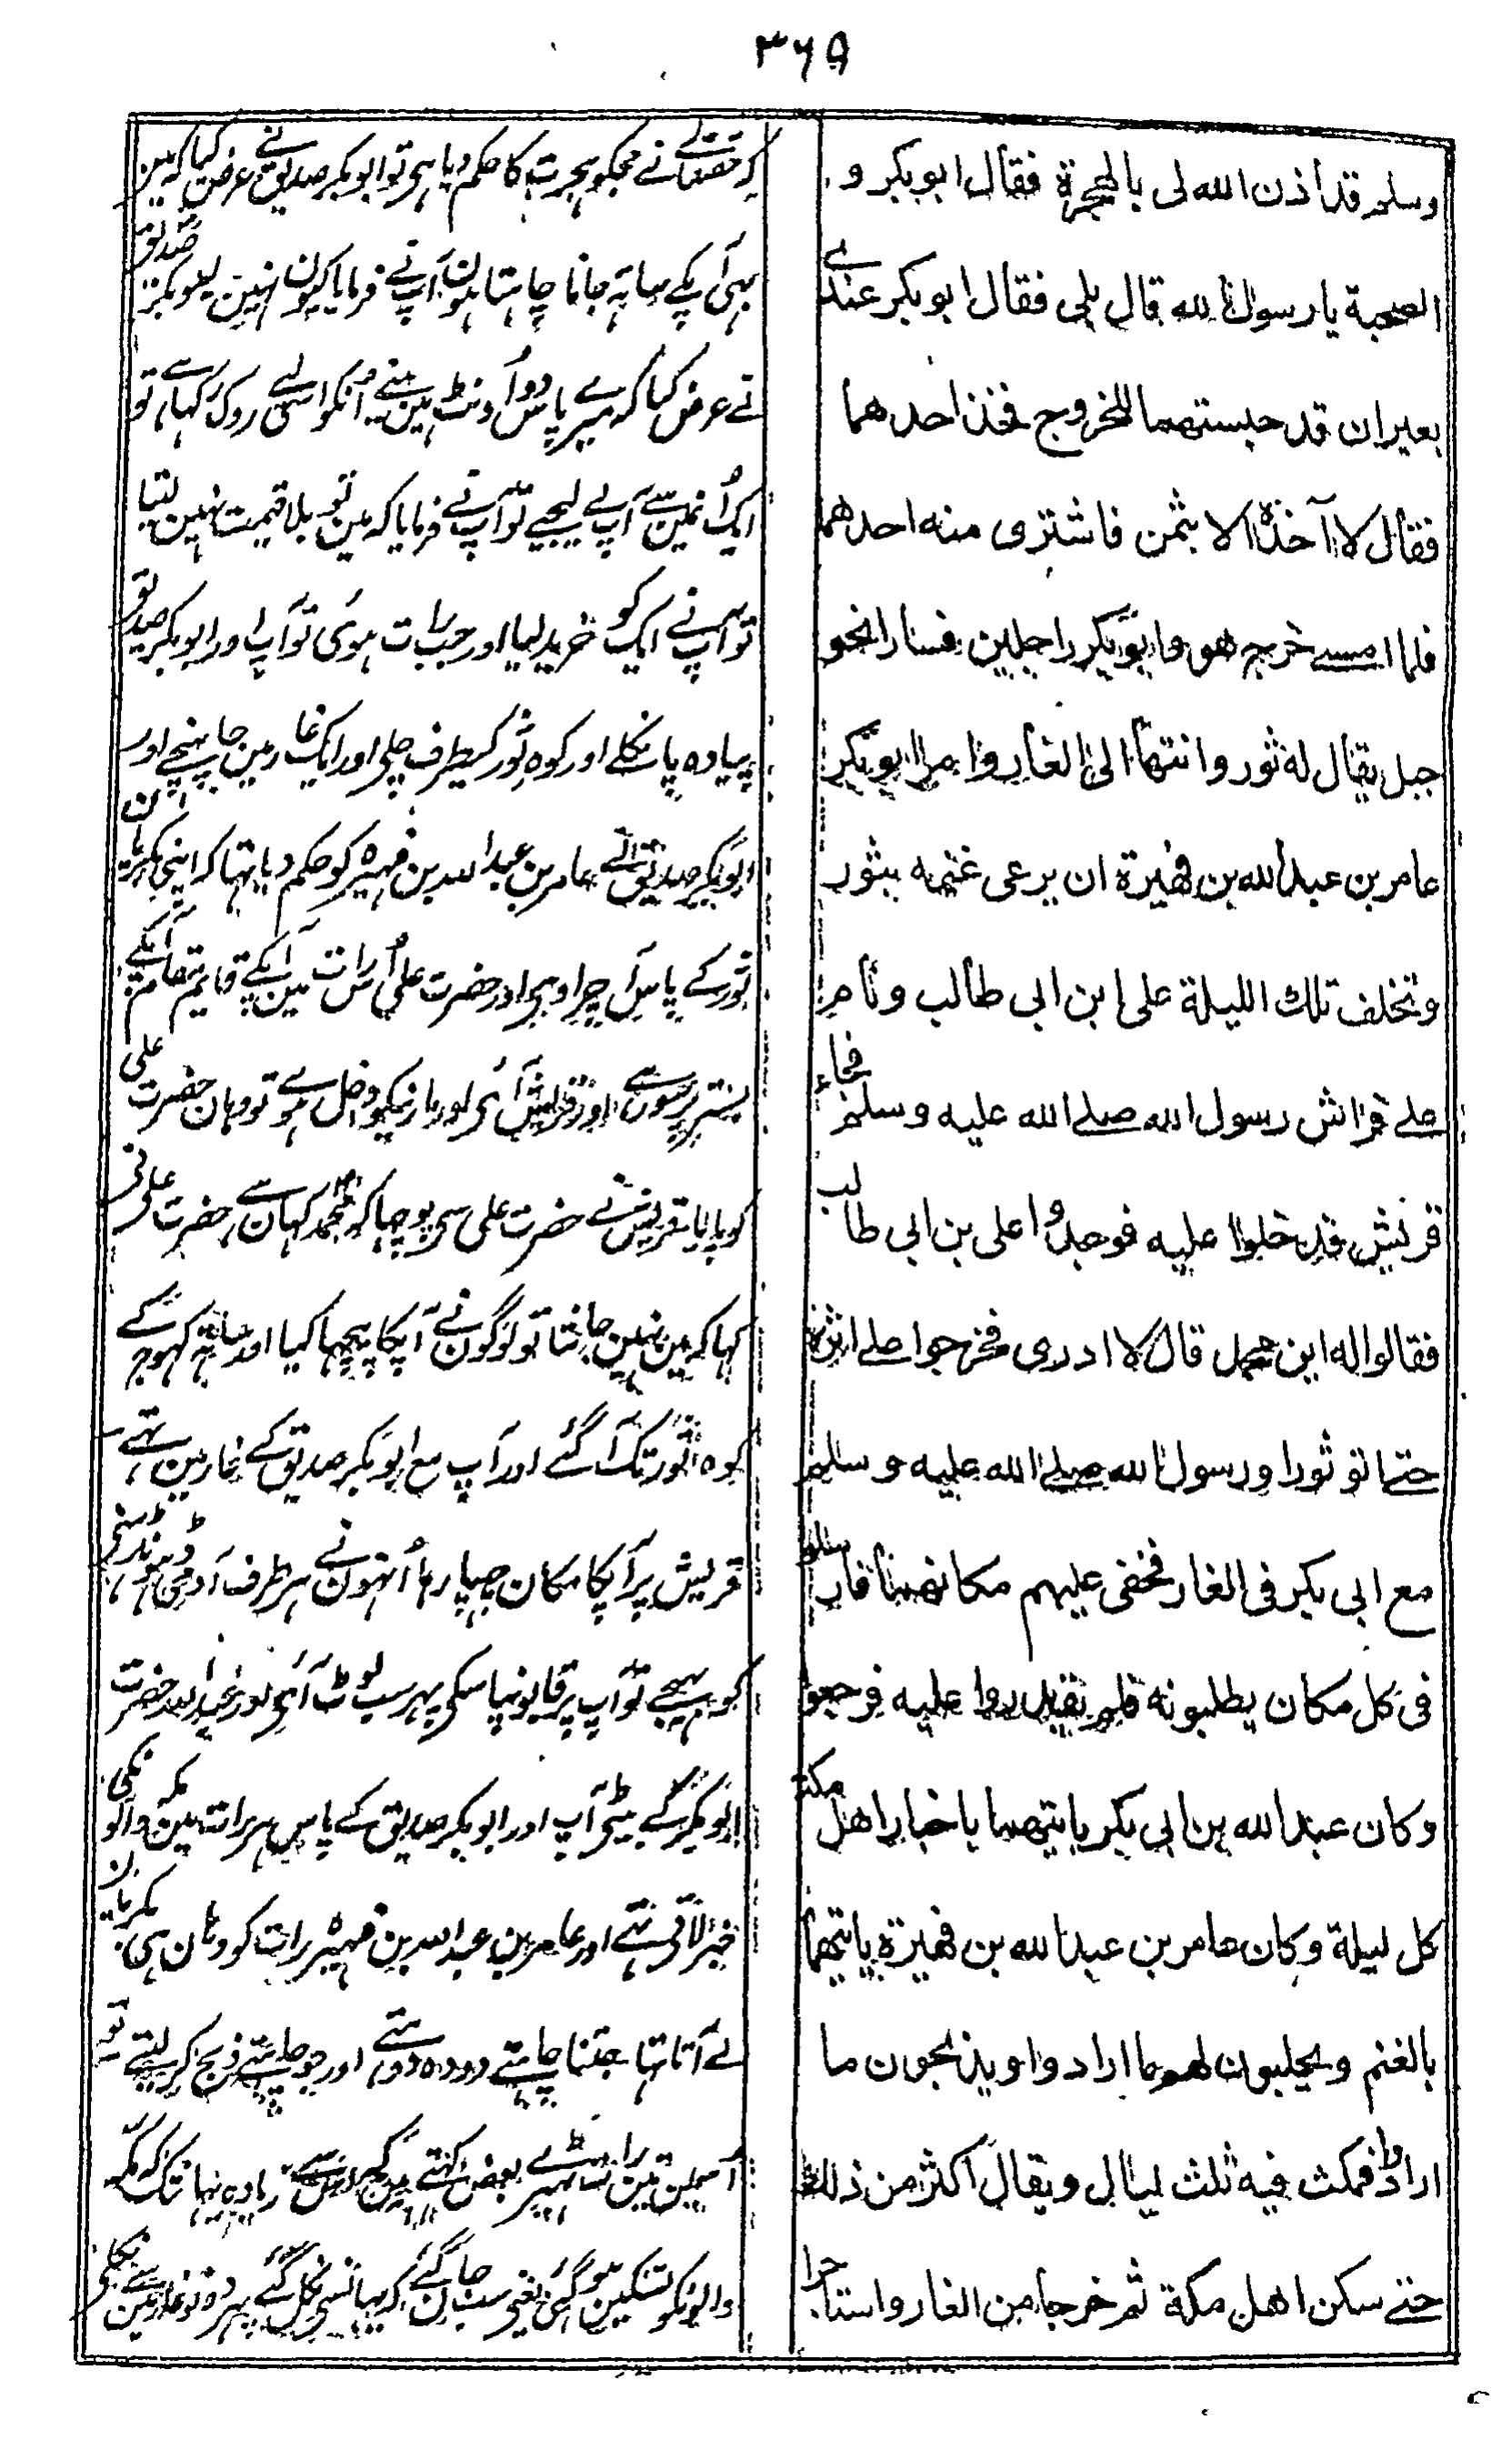 ۳۶۵
وسلم قد اذن الله لی بالهجرة فقال ابوبکر و
الصحبة یا رسول الله قال بلی فقال ابوبکر عندے
بعیران قد حبستهما للخروج فخذ احدهما
فقال لا آخذه الا بثمن فاشتری منه احدهما
فلما امسے خرج هو وابوبکر راجلین فسارا نحو
جبل یقال له ثور وانتهیا الی الغار وامر ابوبکر
عامر بن عبدالله بن فهیرة ان یرعی غنمه بثور
وتخلف تلك اللیلة علی ابن ابی طالب ونام
علے فراش رسول الله صلے الله علیه وسلم فجاء
قریش فدخلوا علیه فوجدوا علی بن ابی طالب
فقالوا له این محمد قال لا ادری فخرجوا علے اثره
حتے اتو ثورا ورسول الله صلے الله علیه وسلم
مع ابی بکر فی الغار فخفی علیهم مکانهما فارسلوا
فی کل مکان یطلبونه فلم یقدروا علیه فرجعوا
وکان عبدالله بن ابی بکر یاتیهما باخبار اهل مکة
کل لیلة وکان عامر بن عبدالله بن فهیرة یاتیهما
بالغنم ویحلبون لهم ما ارادوا ویذبحون ما
ارادوا فمکث فیه ثلث لیال ویقال اکثر من ذلك
حتے سکن اهل مکة ثم خرجا من الغار واستاجرا
کہ حقتعالے نے مجکو ہجرت کا حکم دیا ہی تو ابوبکر صدیق نے عرض کیا کہ مین
بہی آپکے ساتہ جانا چاہتا ہون آپ نے فرمایا کیون نہین ابوبکر صدیق
نے عرض کیا کہ میرے پاس دو اونٹ ہین مینے انکو اسی لیے روک رکہا ہے تو
ایک اُنمین سے آپ لے لیجیے تو آپ نے فرمایا کہ مین تو بلا قیمت نہین لیتا
تو آپ نے ایک کو خرید لیا اور جب رات ہوئی تو آپ اور ابوبکر صدیق
پیادہ پا نکلے اور کوہ ثور کیطرف چلی اور ایک غار مین جا پہنچے اور
ابوبکر صدیق نے عامر بن عبداللہ بن فہیرہ کو حکم دیا تہا کہ اپنی بکریان
ثور کے پاس آ چراوی اور حضرت علی اُس رات مین آپکے قایم مقام آپکے
بستر پر سوئے اور قریش آئی اور مار نیکو داخل ہوئے تو وہان حضرت علی
کو پایا قریش نے حضرت علی سی پوچہا کہ محمد کہان ہے، حضرت علی نی
کہا کہ مین نہین جانتا تو لوگون نے آپکا پیچہا کیا اور ساتہ کہوج کے
کوہ ثور تک آ گئے اور آپ مع ابوبکر صدیق کے غار مین تہے
قریش پر آپکا مکان چہپا رہا اُنہون نے ہر طرف آدمی ڈہونڈہنی
کو بہیجے تو آپ پر قابو نپا سکی پہر سب لوٹ آئی اور عبداللہ حضرت
ابوبکر کے بیٹی آپ اور ابوبکر صدیق کے پاس ہر رات مین مکہ والونکی
خبر لاتی تہے اور عامر بن عبداللہ بن فہیرہ رات کو وہان ہی بکریان
لے آتا تہا جتنا چاہتے دودہ دوہتے اور جو چاہتے ذبح کر لیتے تو
اسمین تین رات ٹہیرے بعض کہتے ہین کہ اس سے زیادہ یہانتک کہ مکہ
والونکو تسکین ہو گئی یعنی سب جان گئے کہ یہانسی نکل گئے پہر وہ تو غار مین سے نکلی